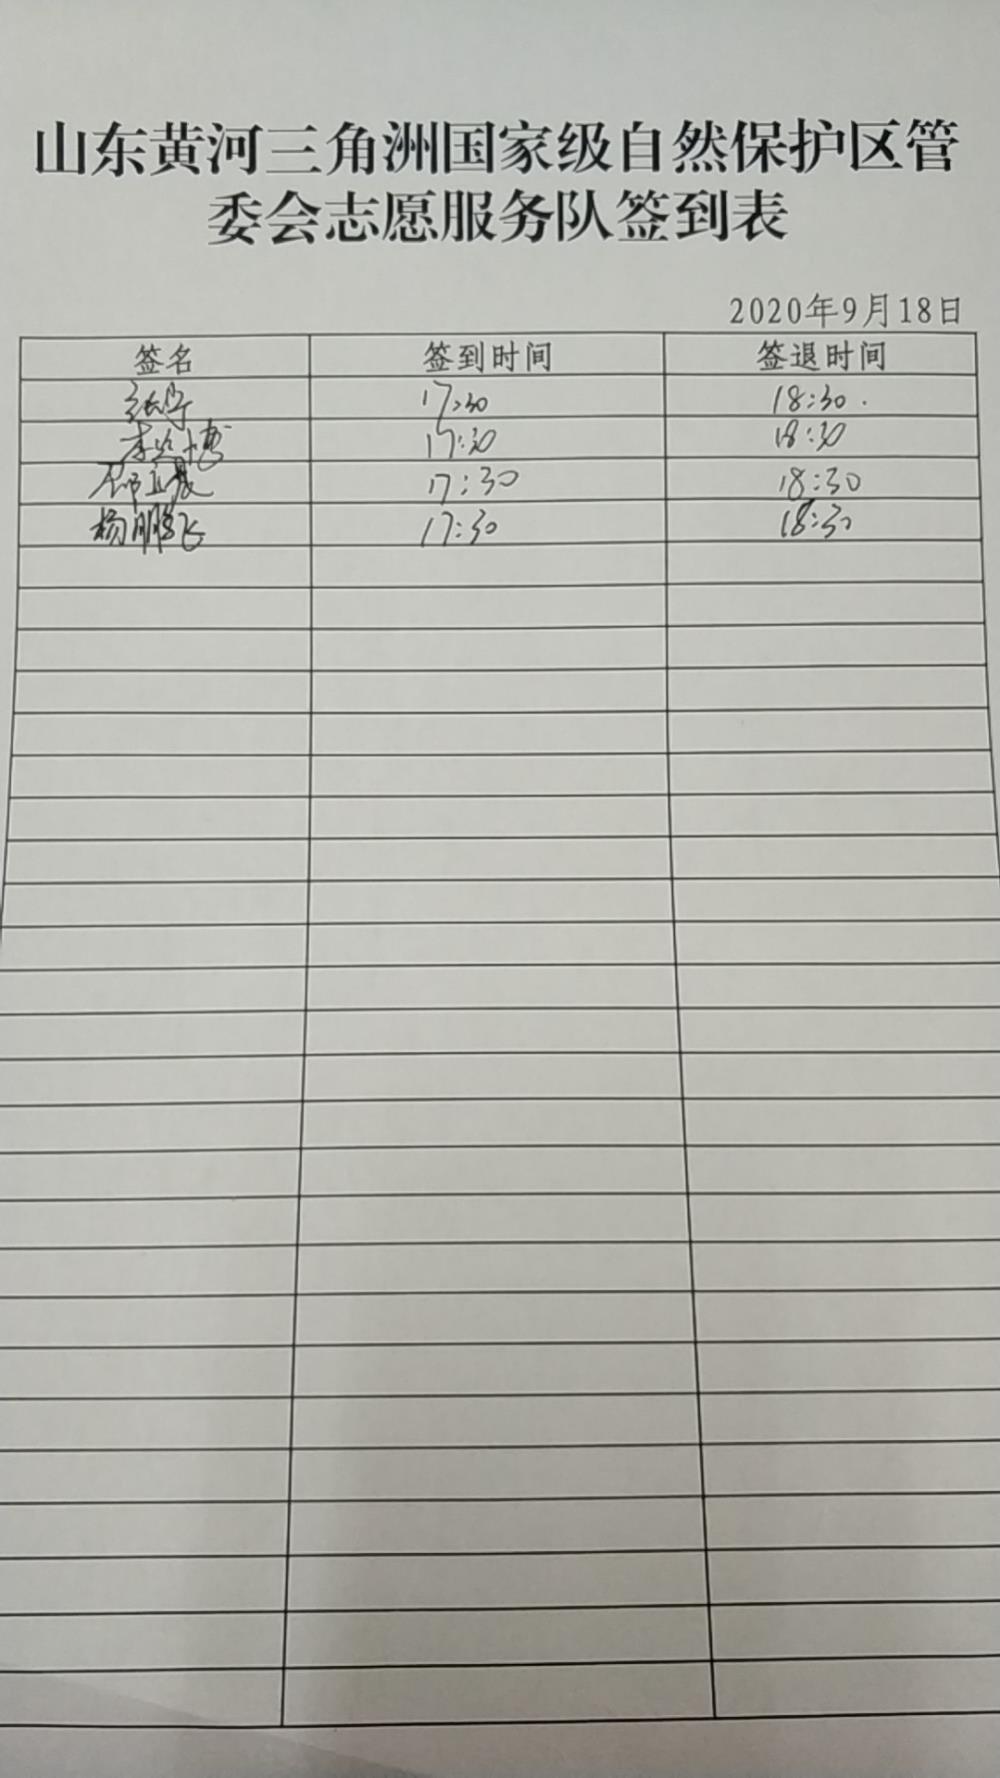 山东黄河三角洲国家级自然保护区管
委会志愿服务队签到表
2020年9月18日
签名 签到时间 签退时间
张宁 17:30 18:30.
李 博 17:30 18:30
17:30 18:30
杨鹏飞 17:30 18:30